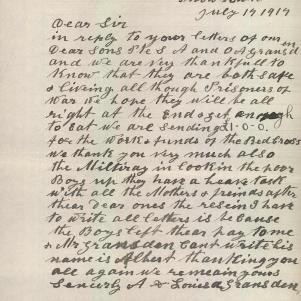 July 17 1917
Dear Sir
in reply to your letters of our
Dear Sons Ptes A and O A Gransden
and we are very thankfull to
Know that they are both safe
& liveing all though Prisoners of
War We hope they will be all
right at the End & get enough
to Eat we are sending £1-0-0
for the Work & funds of the Red Cross
we thank you very much also
the Militray in lookin the poor
Boys up they have a heave task
with all the Mothers & freinds after
thear Dear ones the resein I have
to write all letters is because
the Boys left thear pay to me
& Mr Gransden Cant write his
name is Albert thanking you
all again we remeain yours
Sencerly A & Louisa Gransden